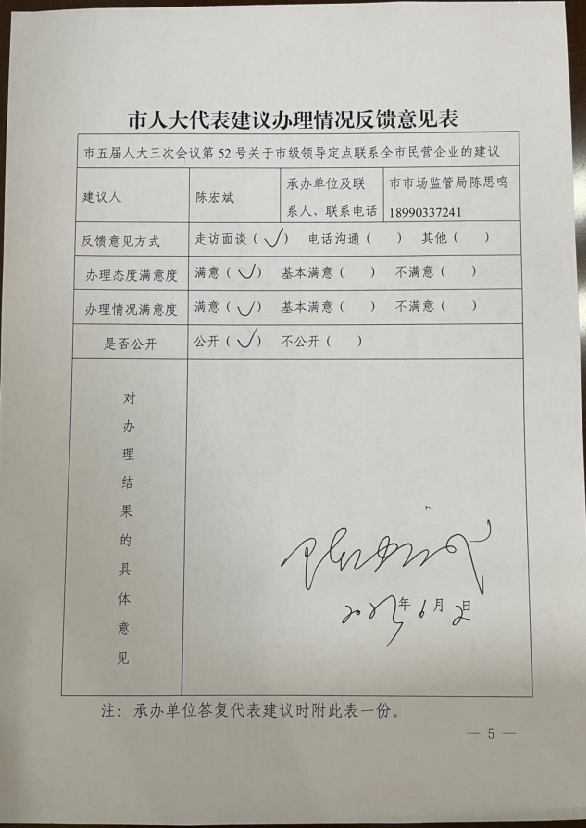 市人大代表建议办理情况反馈意见表
市五届人大三次会议第 52 号关于市级领导定点联系全市民营企业的建议
建议人 陈宏斌 承办单位及联系人、联系电话 市市场监管局陈思鸣 18990337241
反馈意见方式 走访面谈（✓） 电话沟通（ ） 其他（ ）
办理态度满意度 满意（✓） 基本满意（ ） 不满意（ ）
办理情况满意度 满意（✓） 基本满意（ ） 不满意（ ）
是否公开 公开（✓） 不公开（ ）
对办理结果的具体意见
陈宏斌
年 6 月 2 日
注：承办单位答复代表建议时附此表一份。
— 5 —